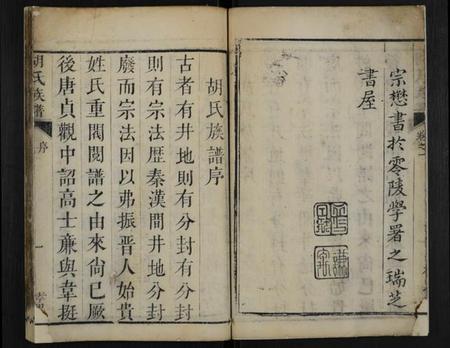 宗懋書於零陵學署之瑞芝
書屋
胡氏族譜序
古者有井地則有分封有分封
則有宗法歷秦漢間井地分封
廢而宗法因以弗振晉人始貴
姓氏重閥閱譜之由來尚已厥
後唐貞觀中詔高士廉與韋挺
胡氏族譜
序
一